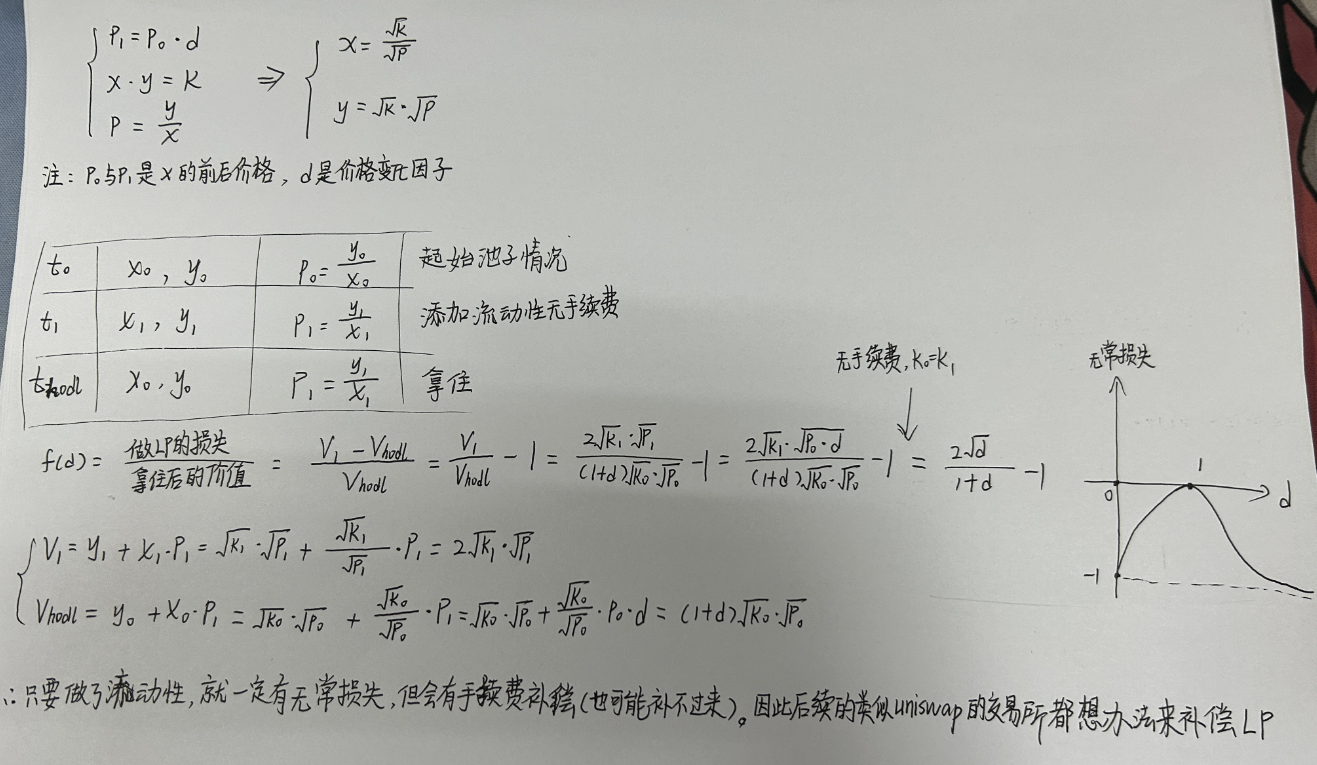 P₁ = P₀ · d
x · y = K ⇒
P = y/x
x = √K/√P
y = √K · √P
注：P₀与P₁是x的前后价格，d是价格变化因子
t₀ x₀，y₀ P₀ = y₀/x₀ 起始池子情况
t₁ x₁，y₁ P₁ = y₁/x₁ 添加流动性无手续费
t_hodl x₀，y₀ P₁ = y₁/x₁ 拿住
无手续费，K₀=K₁
f(d) = 做LP的损失/拿住后的价值 = (V₁ - Vhodl)/Vhodl = V₁/Vhodl - 1 = 2√K₁·√P₁/((1+d)√K₀·√P₀) - 1 = 2√K₁·√P₀·d/((1+d)√K₀·√P₀) - 1 = 2√d/(1+d) - 1
V₁ = y₁ + x₁·P₁ = √K₁·√P₁ + √K₁/√P₁ · P₁ = 2√K₁·√P₁
Vhodl = y₀ + x₀·P₁ = √K₀·√P₀ + √K₀/√P₀ · P₁ = √K₀·√P₀ + √K₀/√P₀ · P₀·d = (1+d)√K₀·√P₀
无常损失
1
0
d
-1
∴只要做了流动性，就一定有无常损失，但会有手续费补偿(也可能补不过来)。因此后续的类似uniswap的交易所都想办法来补偿LP